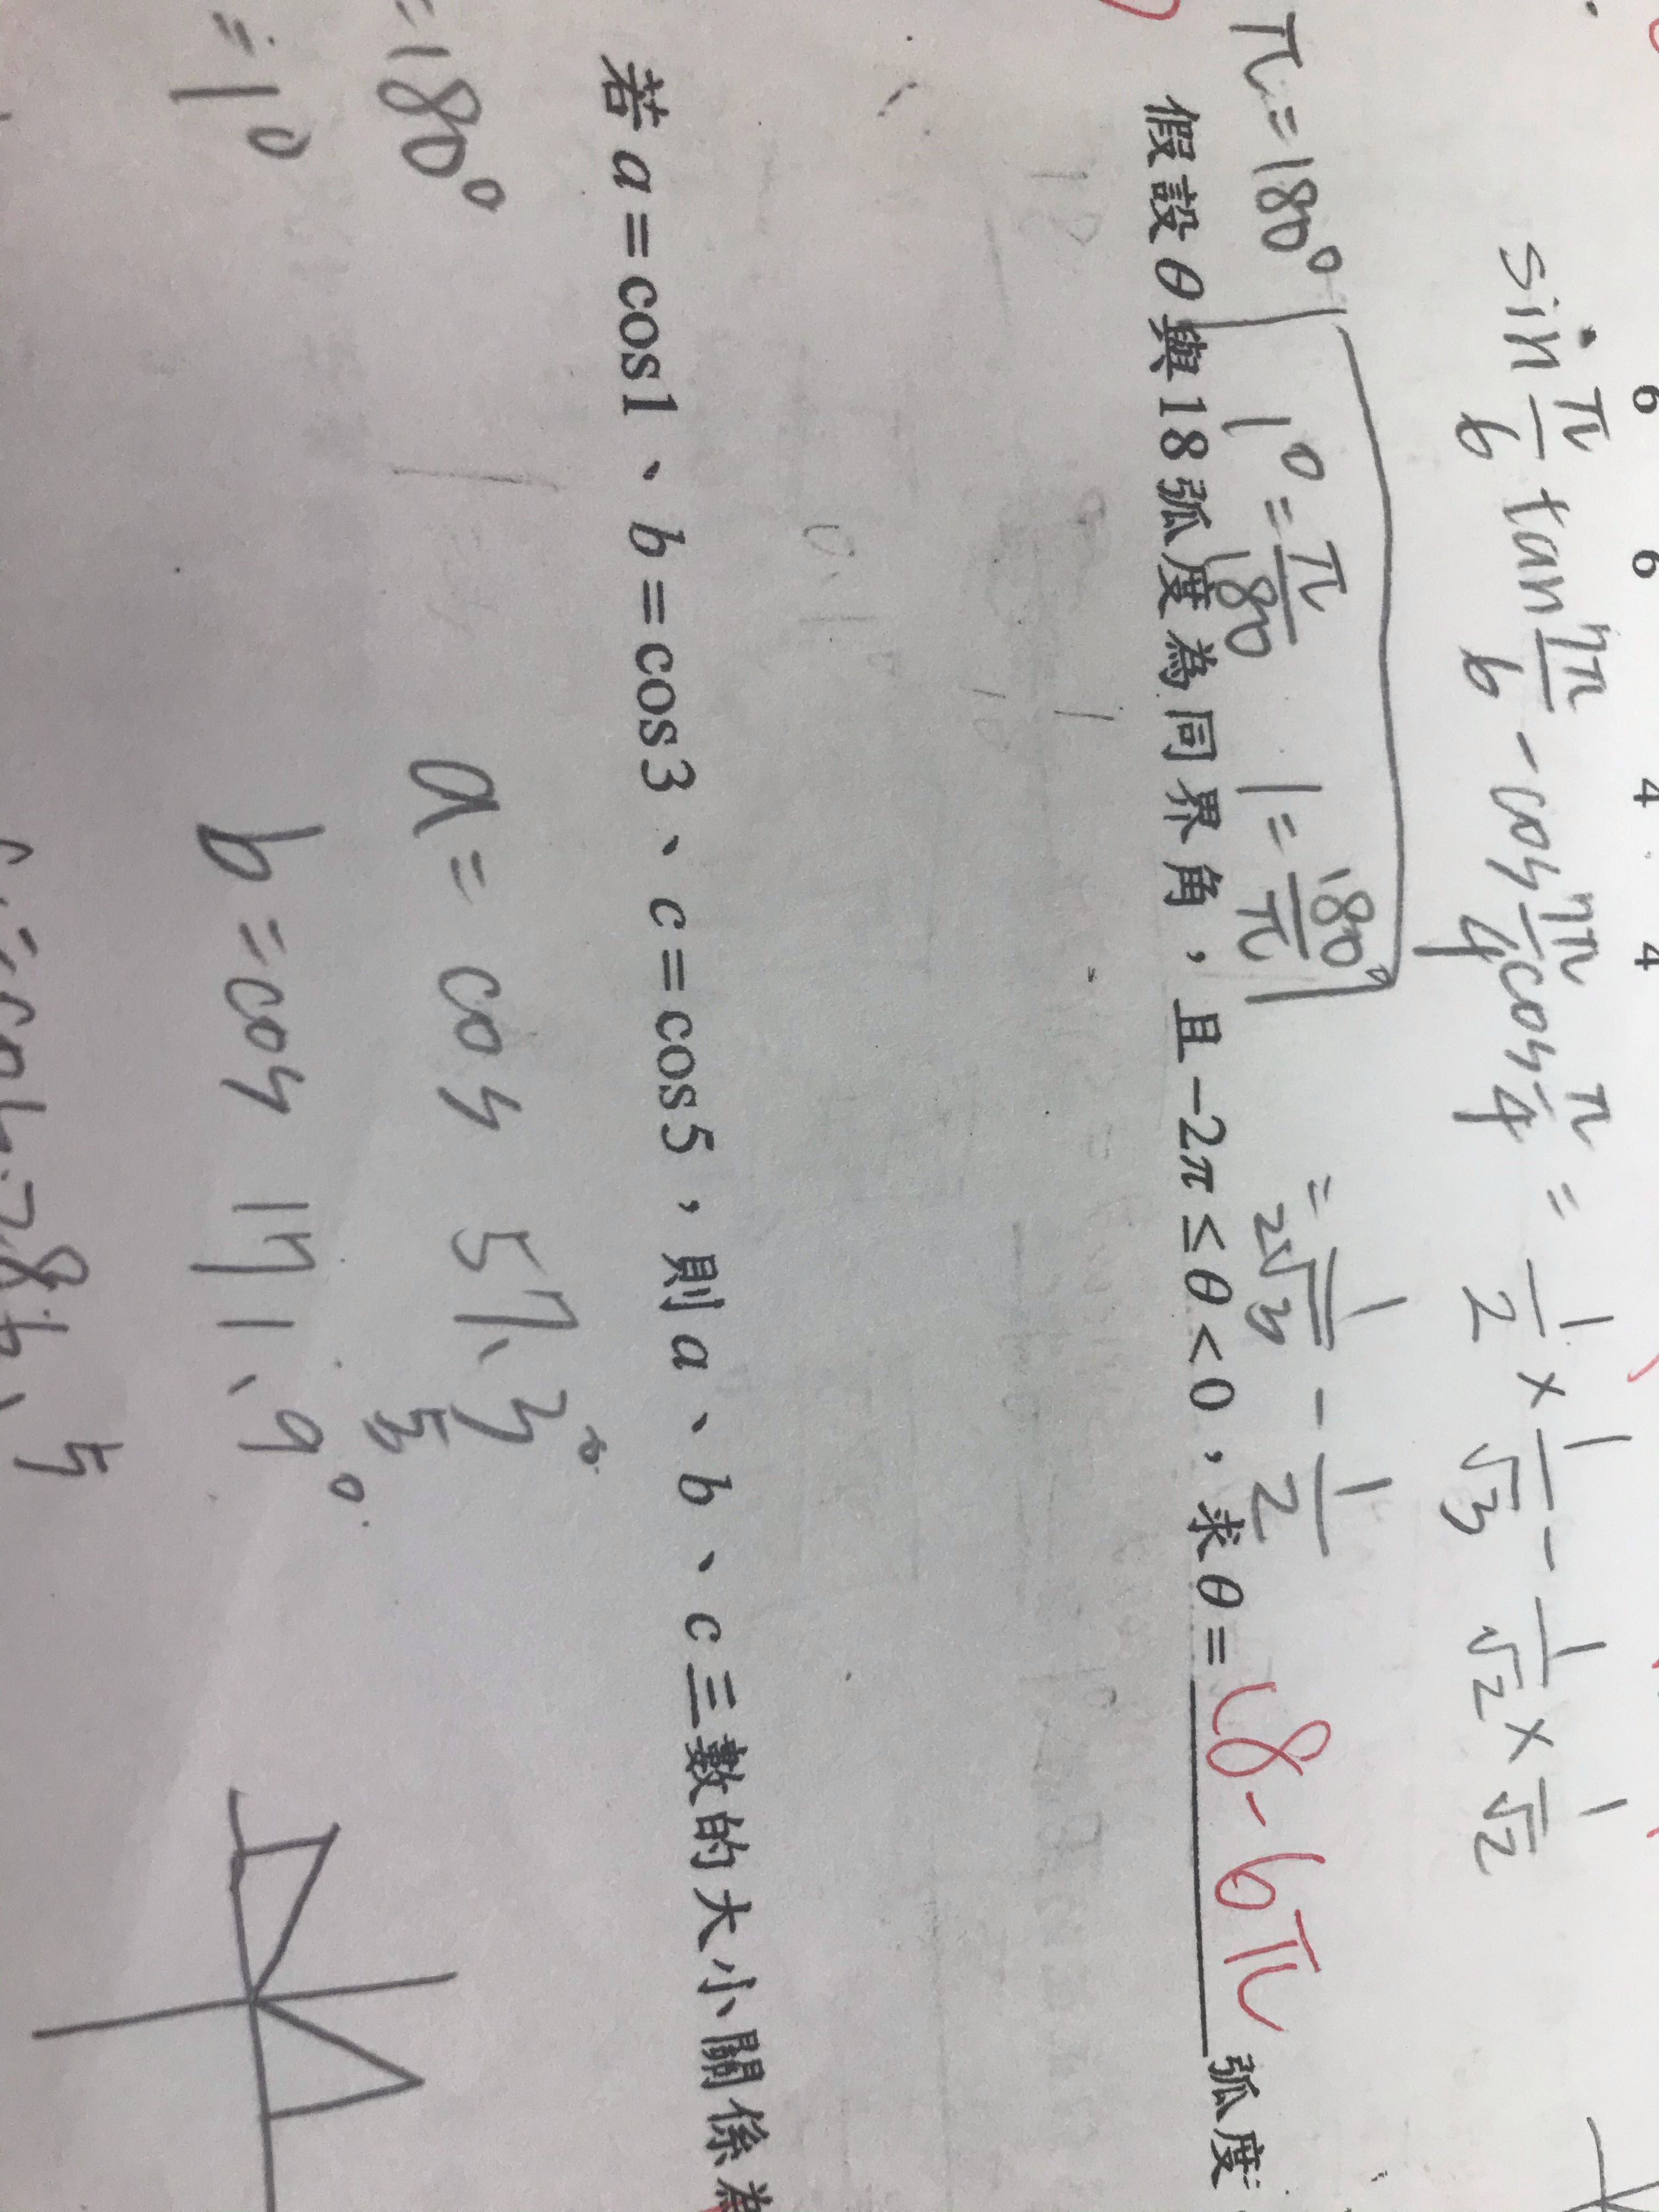 6 6 4 4
sin π/6 tan π/6 - cos π/4 cos π/4 = 1/2 × 1/√3 - 1/√2 × 1/√2
= 1/2√3 - 1/2
π=180° 1°=π/180 1=180°/π
假設θ與18弧度為同界角，且-2π≤θ<0，求θ= 18-6π 弧度
若a=cos1、b=cos3、c=cos5，則a、b、c三數的大小關係為
=180° a = cos 57.3°
≒1° b = cos 171.9°